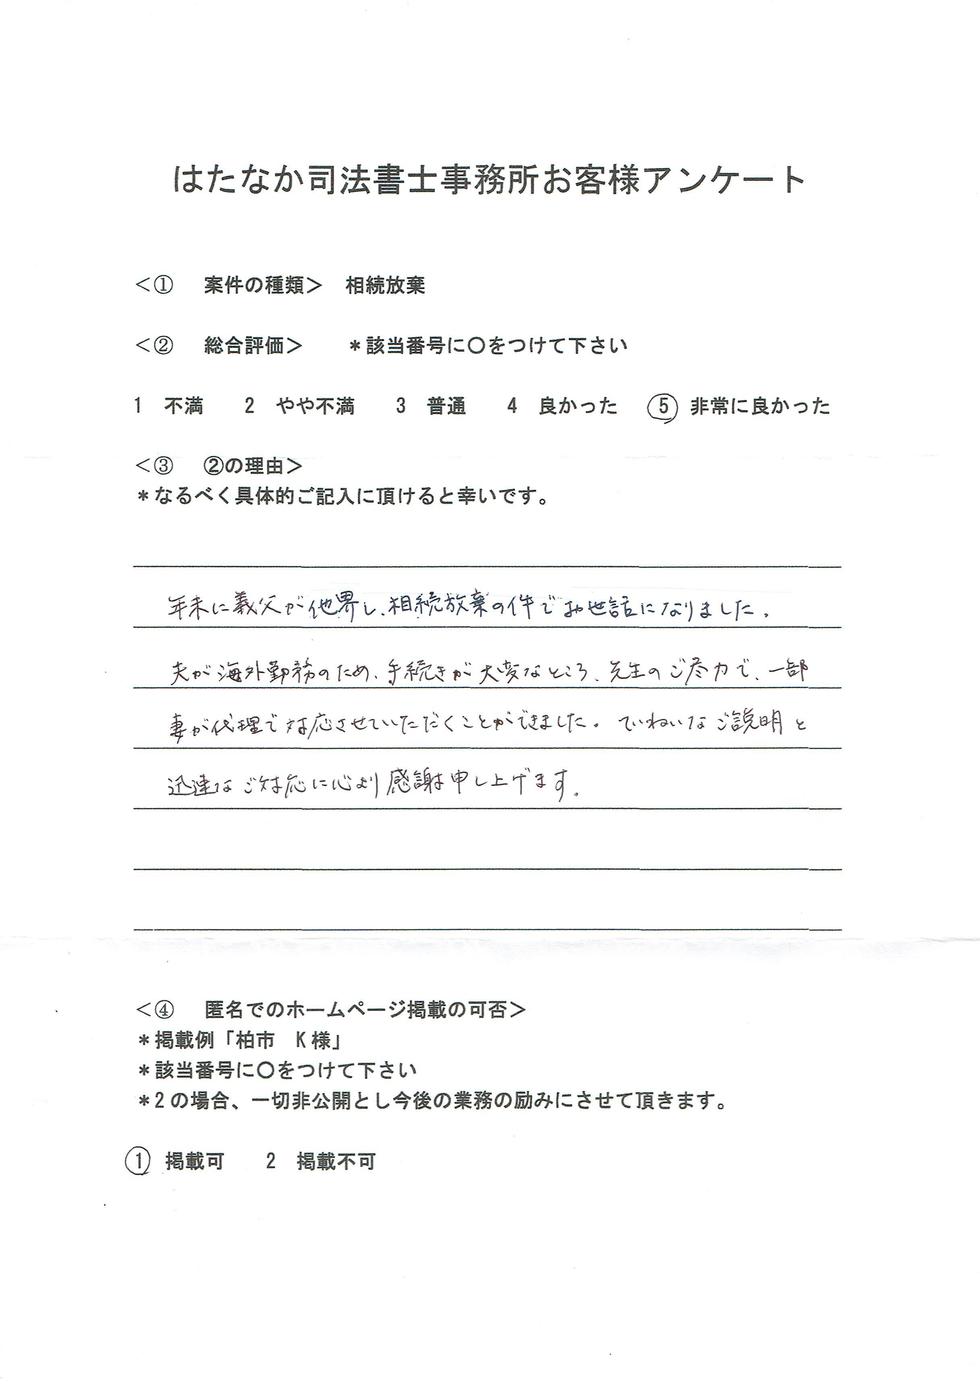 はたなか司法書士事務所お客様アンケート
＜①　案件の種類＞　相続放棄
＜②　総合評価＞　　＊該当番号に〇をつけて下さい
1　不満　　2　やや不満　　3　普通　　4　良かった　　5　非常に良かった
＜③　②の理由＞
＊なるべく具体的ご記入に頂けると幸いです。
年末に義父が他界し、相続放棄の件でお世話になりました。
夫が海外勤務のため、手続きが大変なところ、先生のご尽力で、一部
妻が代理で対応させていただくことができました。ていねいなご説明と
迅速なご対応に心より感謝申し上げます。
＜④　匿名でのホームページ掲載の可否＞
＊掲載例「柏市　K様」
＊該当番号に〇をつけて下さい
＊2の場合、一切非公開とし今後の業務の励みにさせて頂きます。
1　掲載可　　2　掲載不可